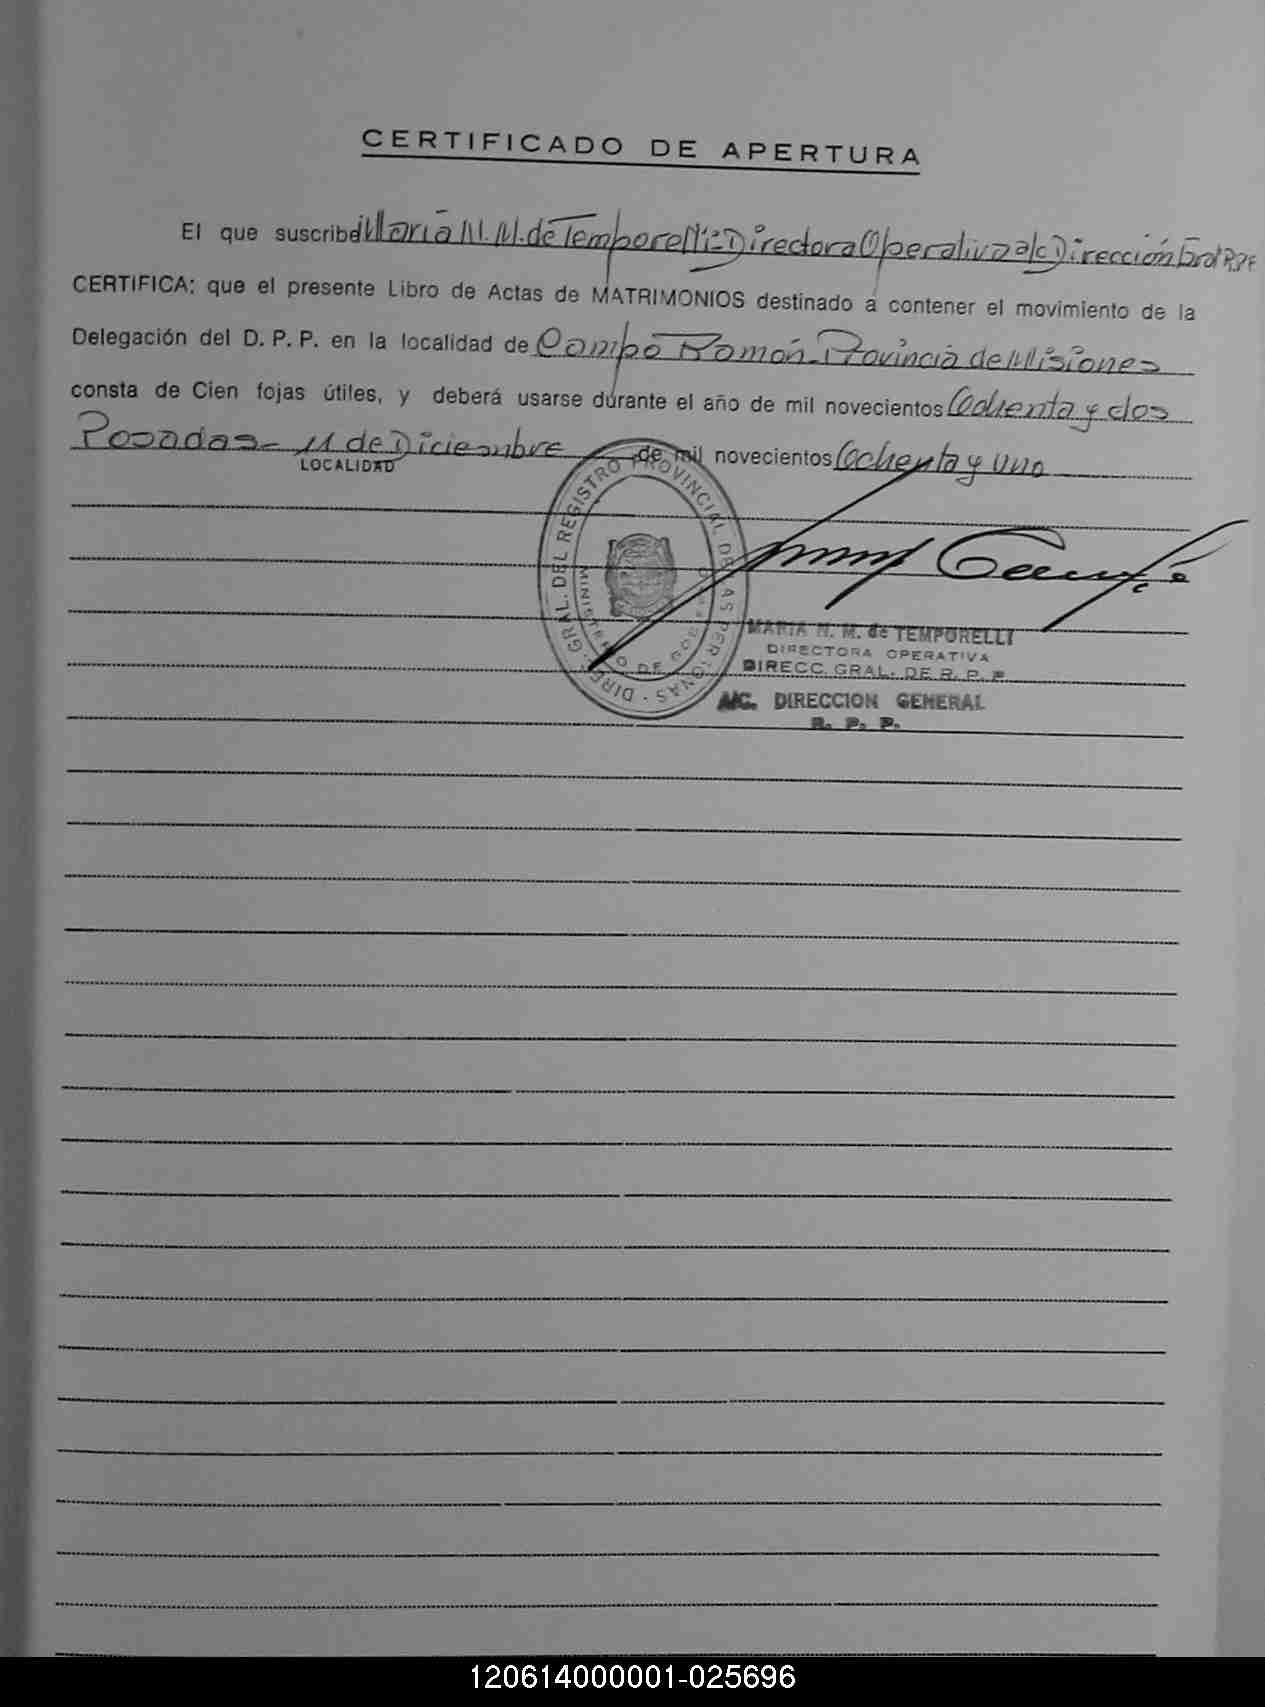 CERTIFICADO DE APERTURA
El que suscribe Maria N. M. de Temporelli - Directora Operativa a/c Dirección Gral R.P.P.
CERTIFICA: que el presente Libro de Actas de MATRIMONIOS destinado a contener el movimiento de la
Delegación del D. P. P. en la localidad de Campo Ramón - Provincia de Misiones
consta de Cien fojas útiles, y deberá usarse durante el año de mil novecientos Ochenta y dos
Posadas - 11 de Diciembre de mil novecientos Ochenta y uno
LOCALIDAD
DIREC. GRAL. DEL REGISTRO PROVINCIAL DE LAS PERSONAS
MINISTERIO DE GOBIERNO
MARIA N. M. de TEMPORELLI
DIRECTORA OPERATIVA
DIRECC. GRAL. DE R. P. P.
A/C. DIRECCION GENERAL
R. P. P.
120614000001-025696